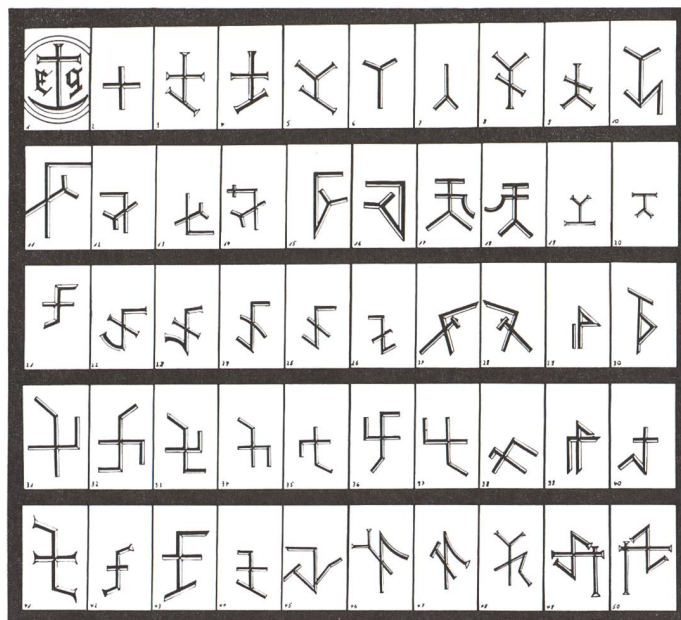 E g
1 2 3 4 5 6 7 8 9 10
11 12 13 14 15 16 17 18 19 20
21 22 23 24 25 26 27 28 29 30
31 32 33 34 35 36 37 38 39 40
41 42 43 44 45 46 47 48 49 50